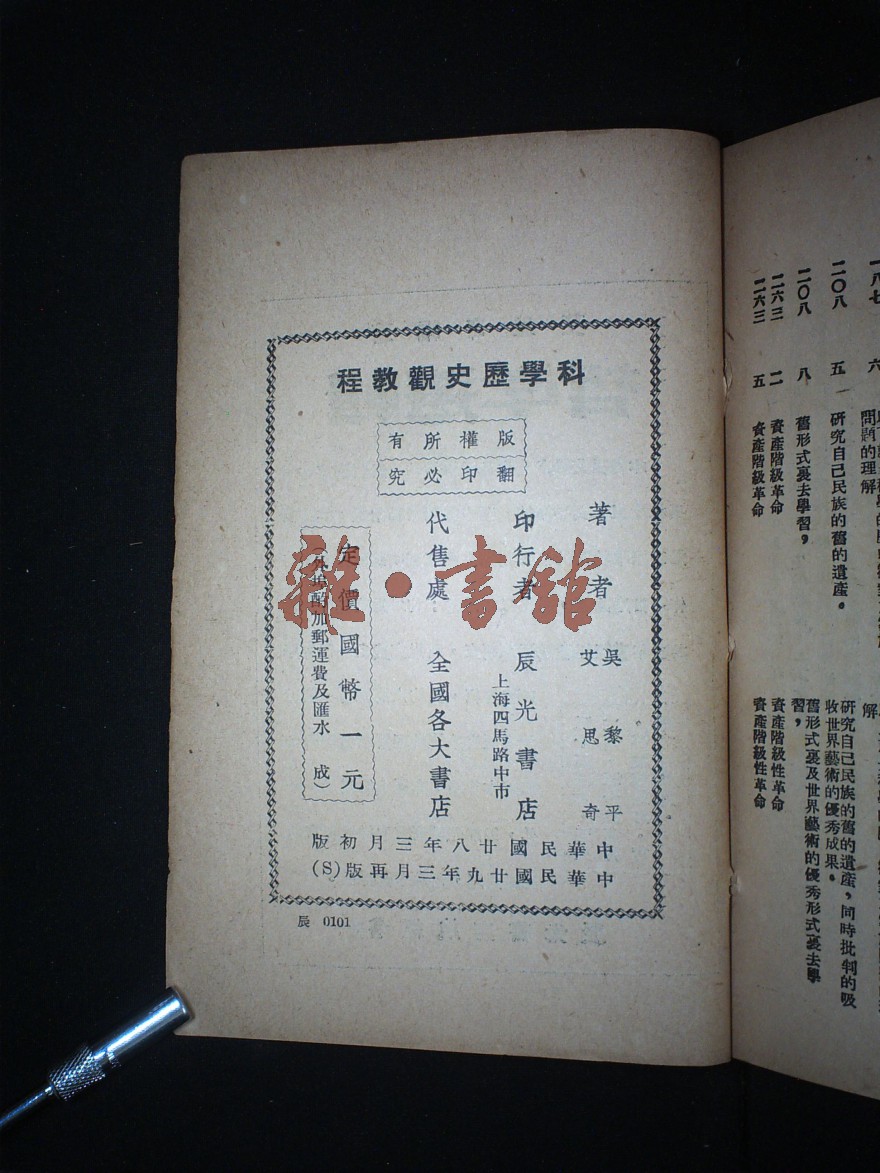 科學歷史觀教程
版權所有
翻印必究
著者 吳黎平
艾思奇
印行者 辰光書店
上海四馬路中市
代售處 全國各大書店
定價國幣一元
加郵運費及匯水 成)
中華民國廿八年三月初版
中華民國廿九年三月再版(S)
辰 0101
雜·書館
一八七 六
問題的理解
解
二〇八 五 研究自己民族的舊的遺產。 研究自己民族的舊的遺產,同時批判的吸
收世界藝術的優秀成果。
二〇八 八 舊形式裏去學習, 舊形式裏及世界藝術的優秀形式裏去學
習,
二六三 二 資產階級革命 資產階級性革命
二六三 五 資產階級革命 資產階級性革命